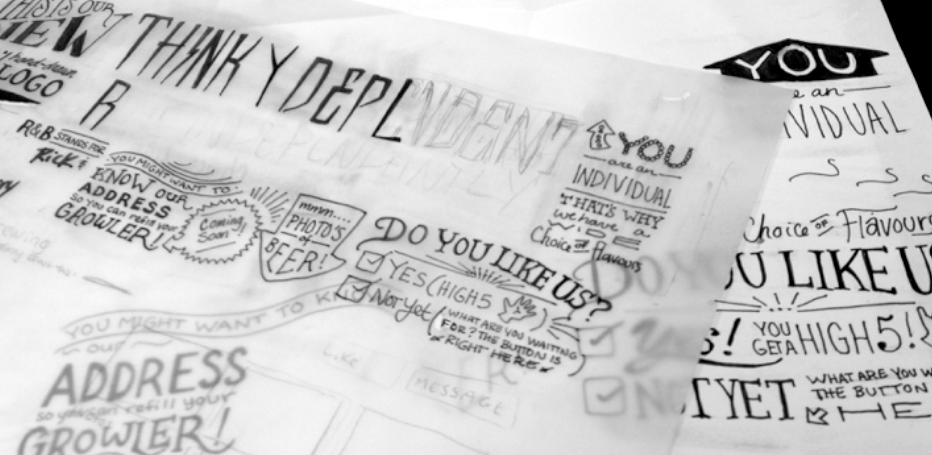 THIS IS OUR
hand-drawn
LOGO
THINK
DEPENDENT
R
R&B STANDS FOR
Rick &
YOU MIGHT WANT TO
KNOW OUR
ADDRESS
so you can refill your
GROWLER!
Coming
Soon
mmm....
PHOTO'S
of
BEER!
YOU
are an
INDIVIDUAL
THAT'S WHY
we have a
WIDE
Choice OF Flavours
DO YOU LIKE US?
YES (HIGH 5
Not yet (WHAT ARE YOU WAITING
FOR? THE BUTTON IS
RIGHT HERE
YOU MIGHT WANT TO KN
our
ADDRESS
so you can refill your
GROWLER!
Like
MESSAGE
DO
NO
YOU
an
IVIDUAL
Choice OF Flavours
OU LIKE US
S! YOU GET A HIGH 5!
T YET WHAT ARE YOU W
THE BUTTON
HE